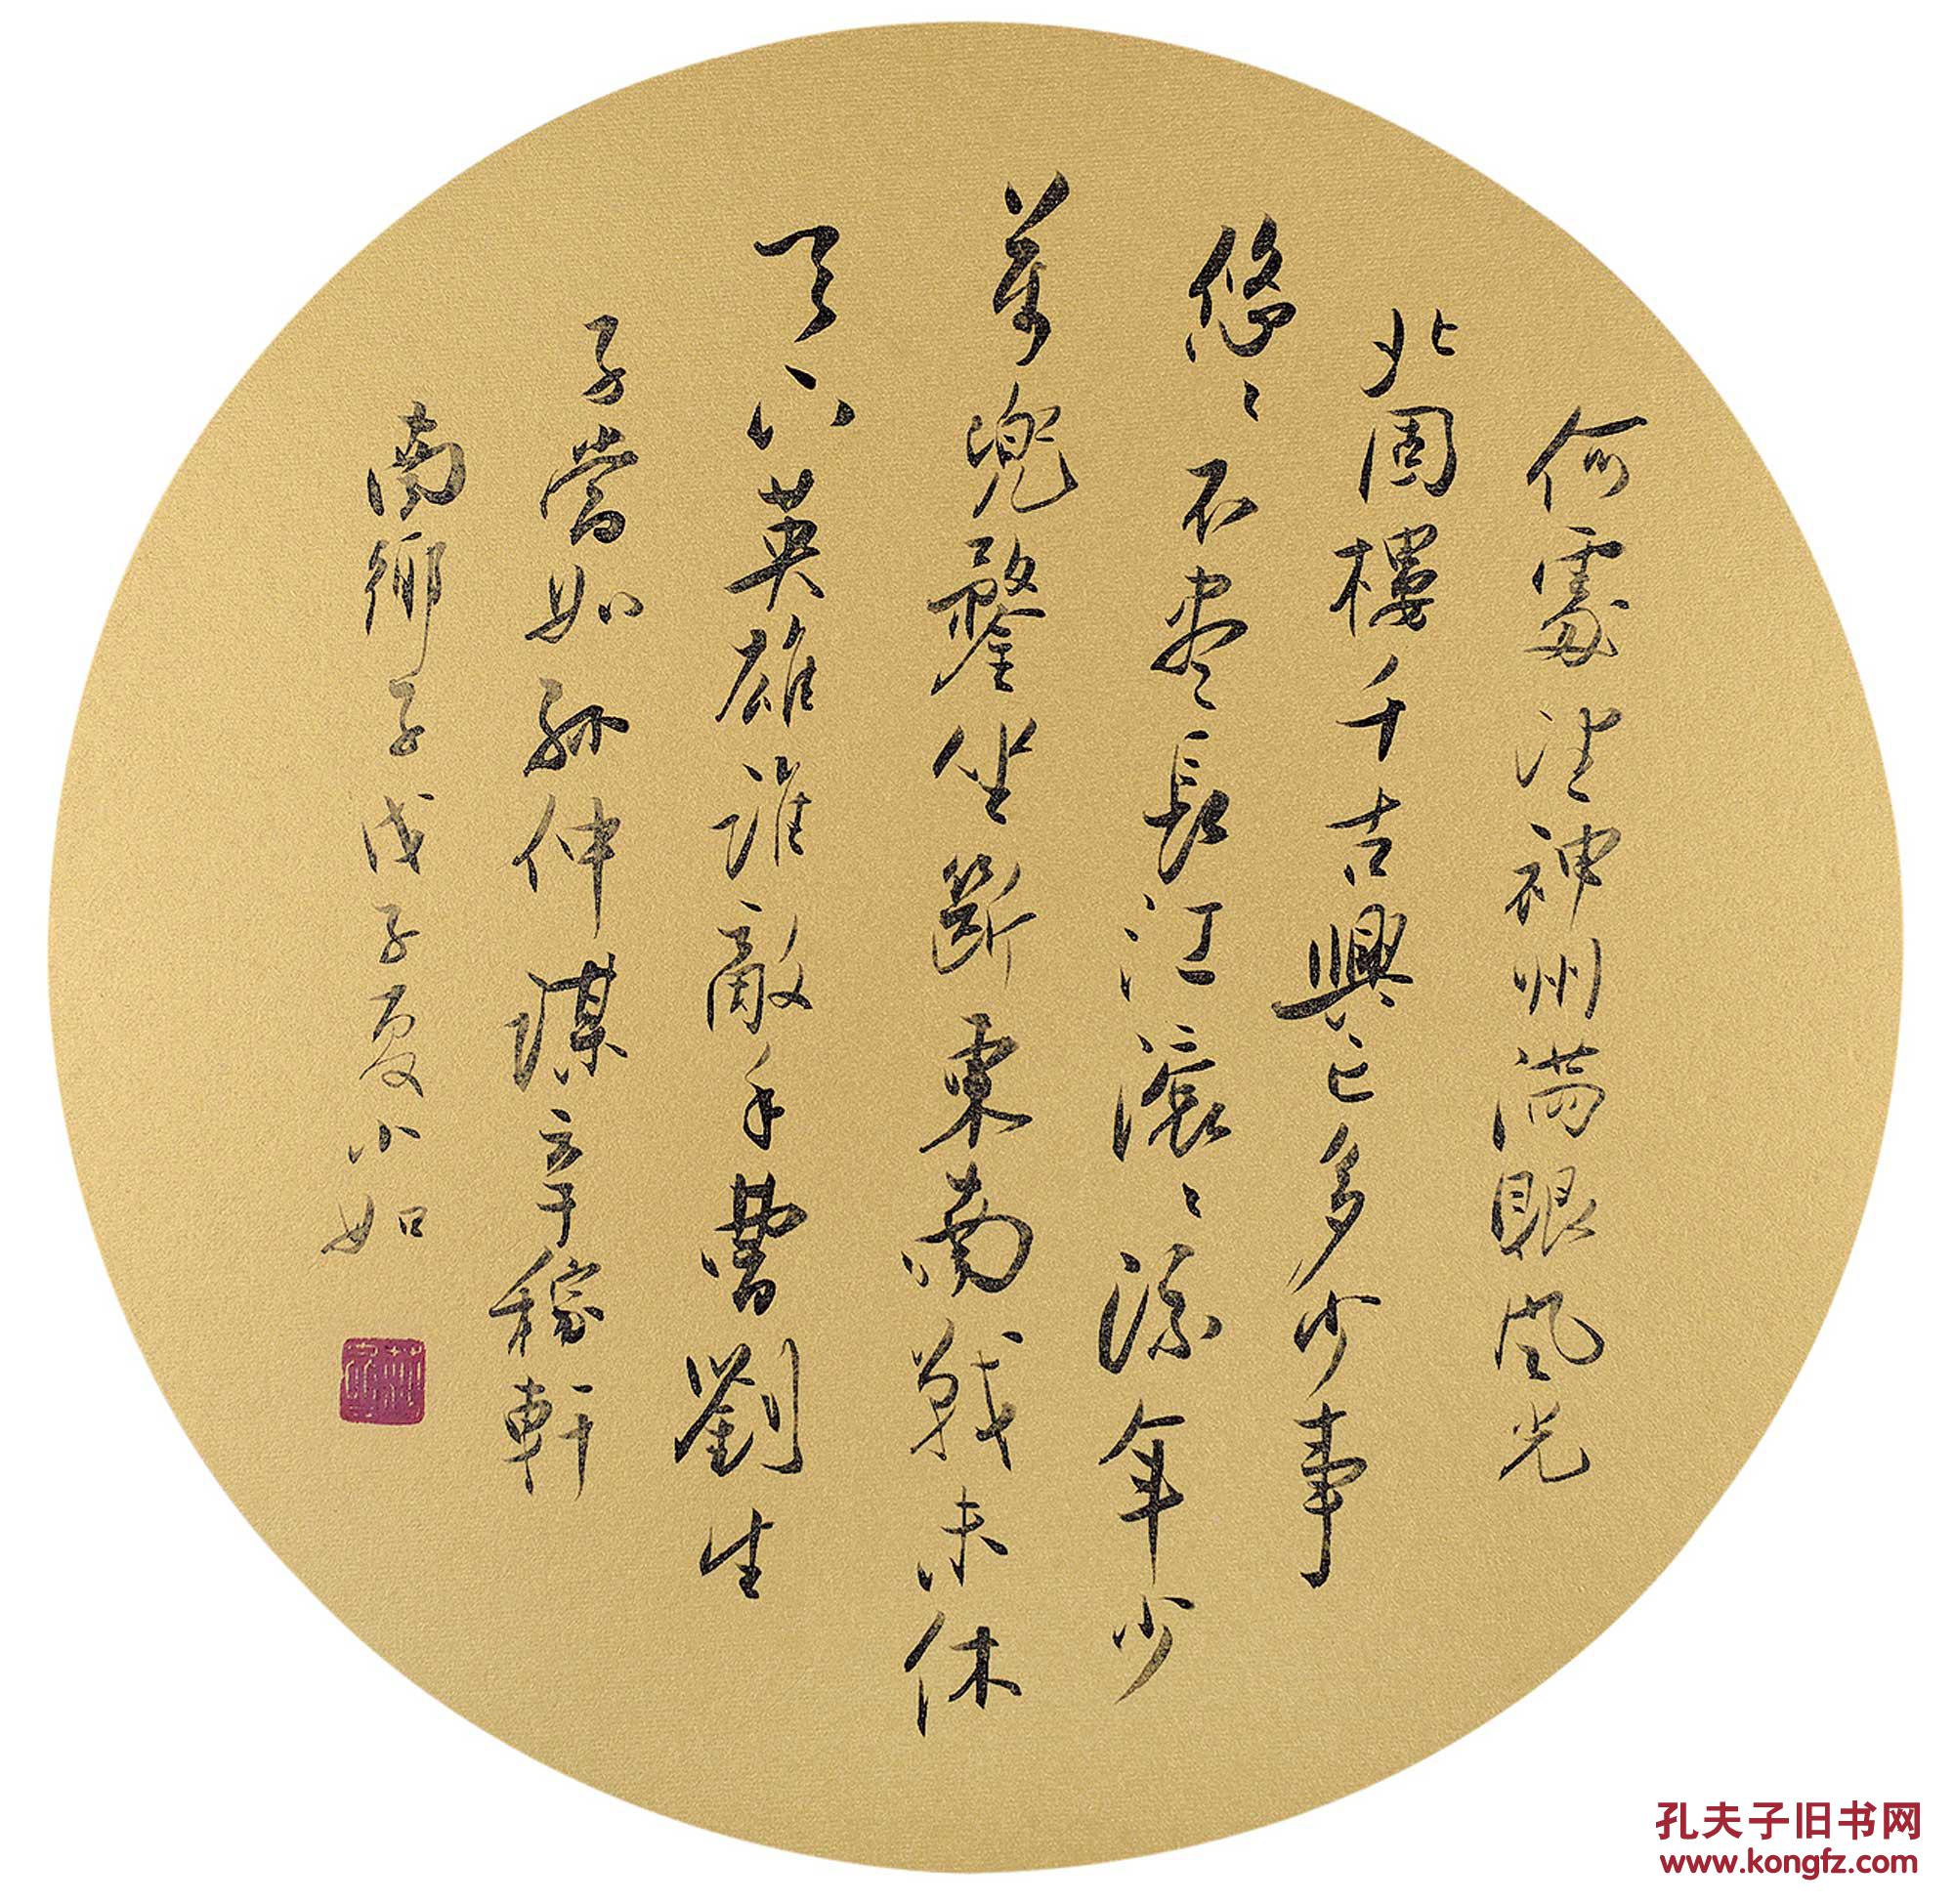 何處望神州滿眼風光
北固樓千古興亡多少事
悠〻不盡長江滾〻流年少
萬兜鍪坐斷東南戰未休
天下英雄誰敵手曹劉生
子當如孫仲謀辛稼軒
南鄉子戊子夏小如
孔夫子旧书网
www.kongfz.com